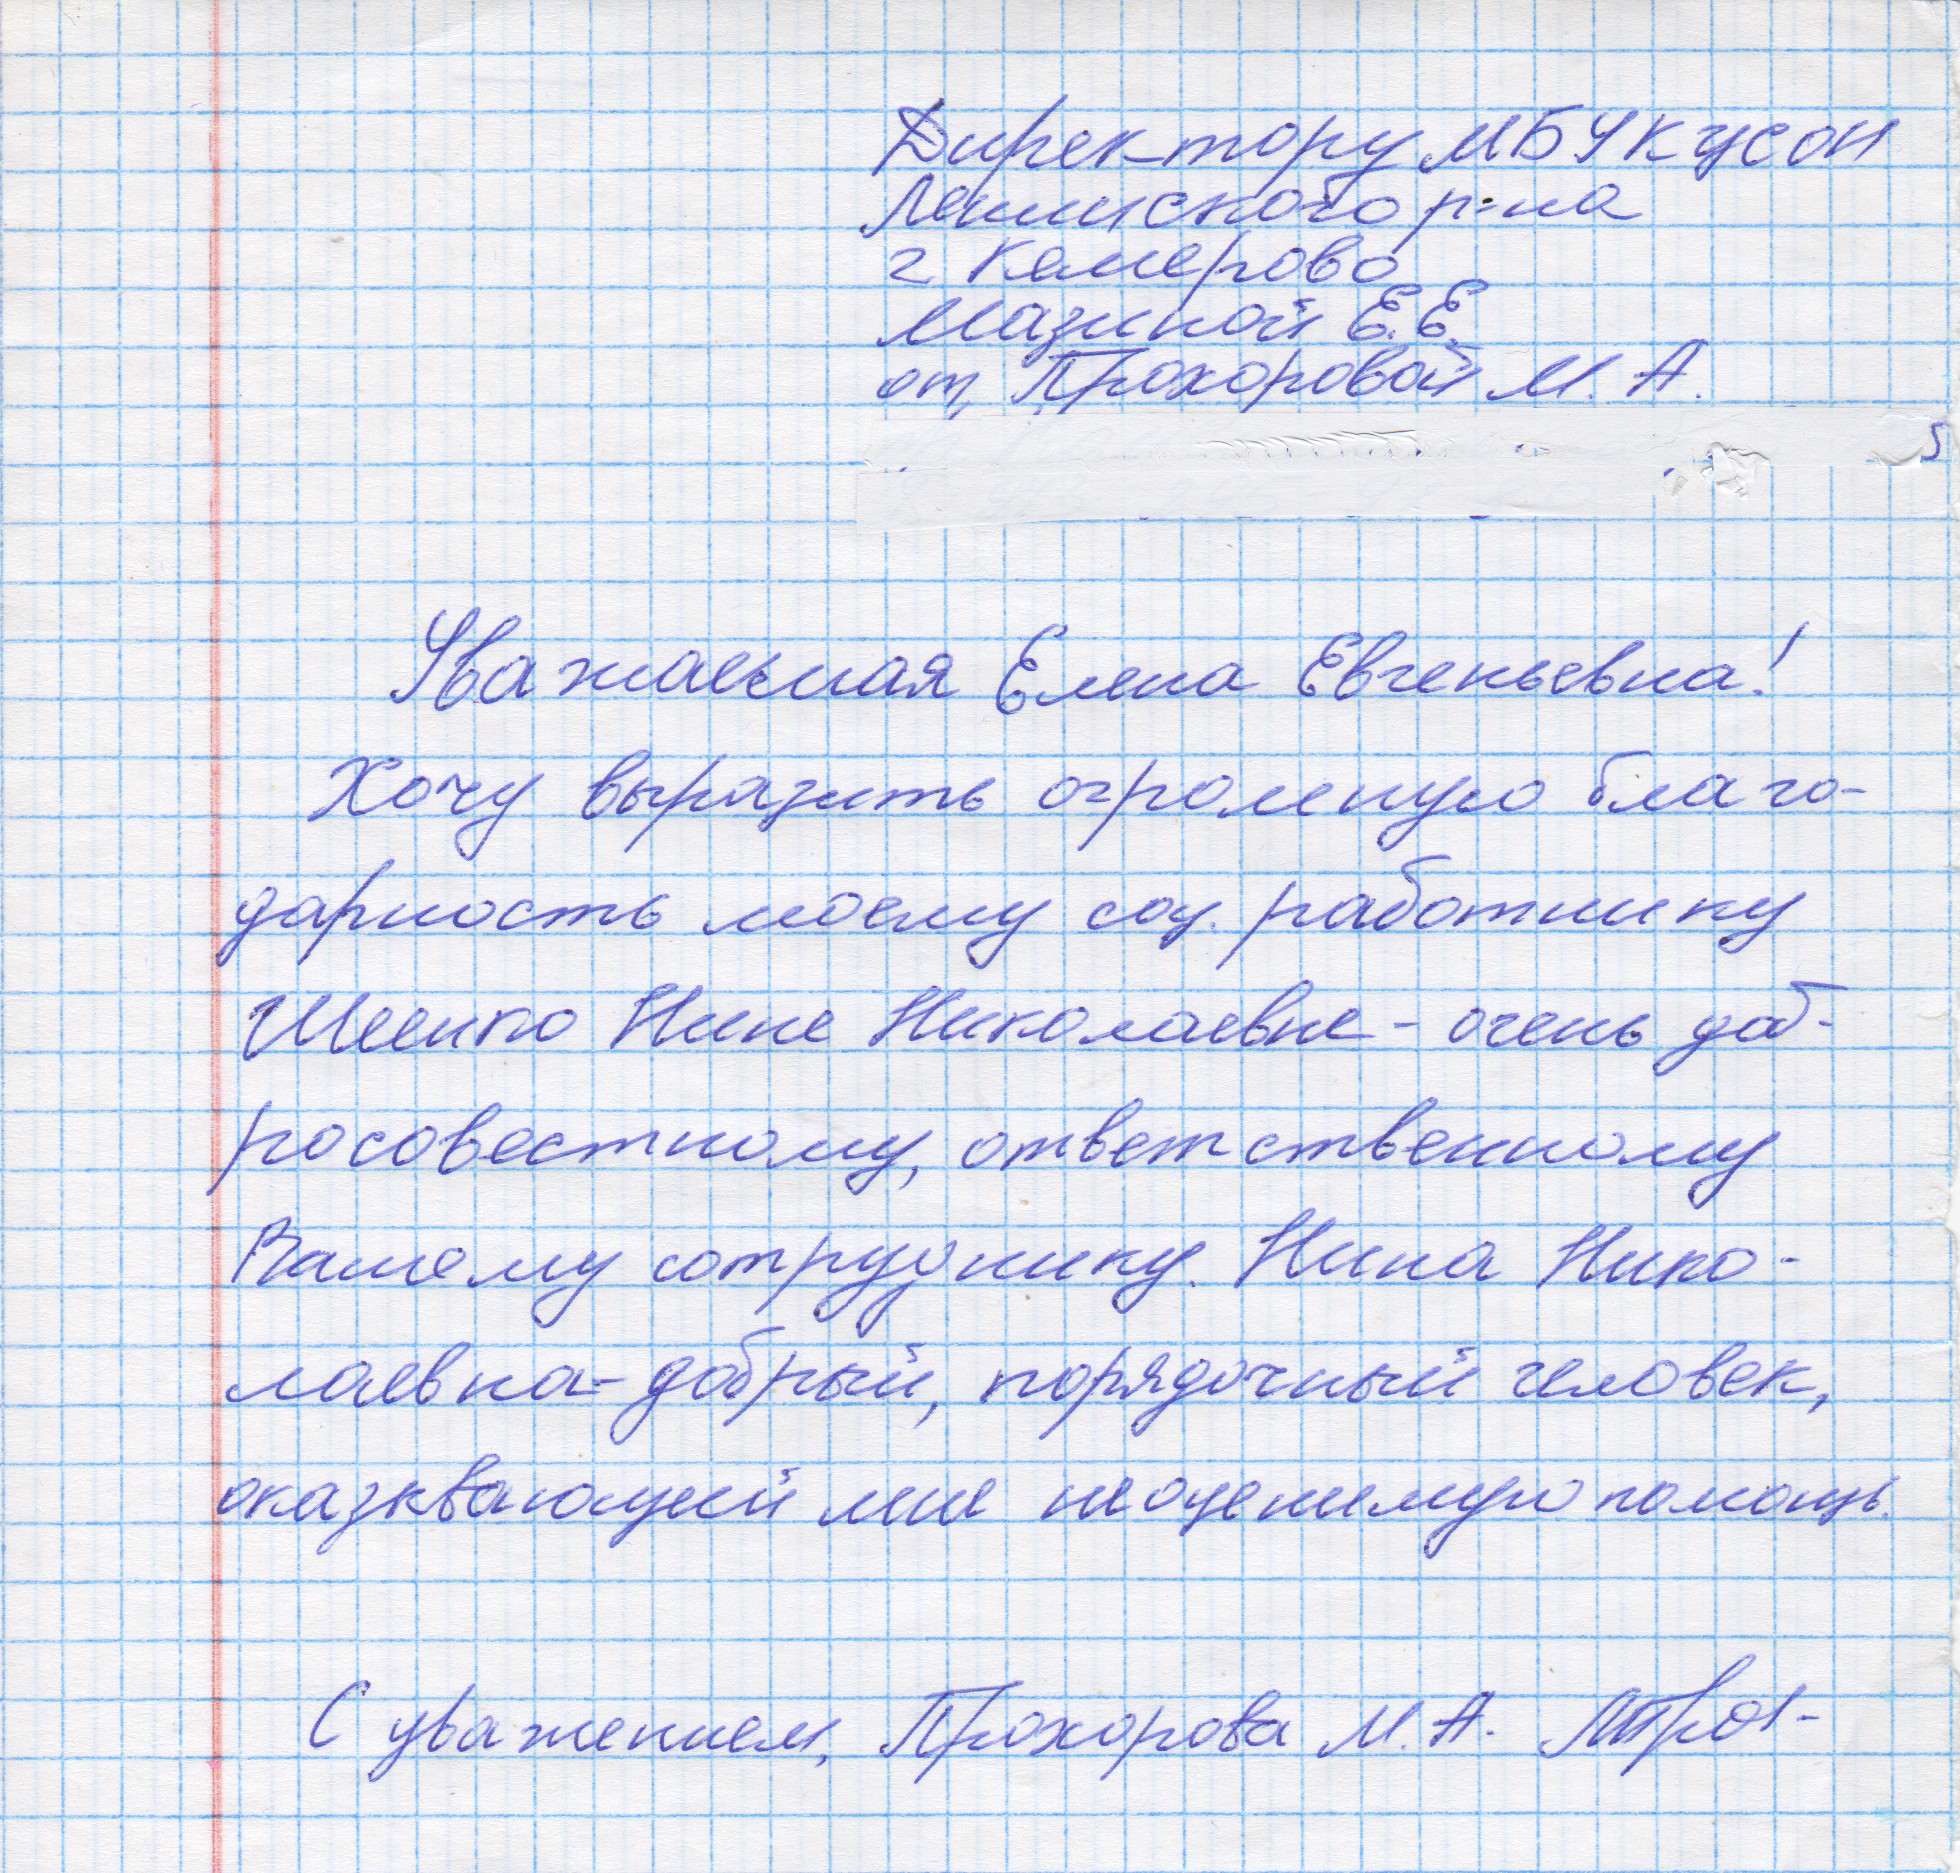 Директору МБУ КЦСОН
Ленинского р-на
г Кемерово
Мазиной Е.Е.
от Прохоровой М.А.
Уважаемая Елена Евгеньевна!
Хочу выразить огромную благо-
дарность моему соц. работнику
Нине Николаевне - очень доб-
росовестному, ответственному
Вашему сотруднику. Нина Нико-
лаевна - добрый, порядочный человек,
оказывающий мне неоценимую помощь.
С уважением, Прохорова М.А.